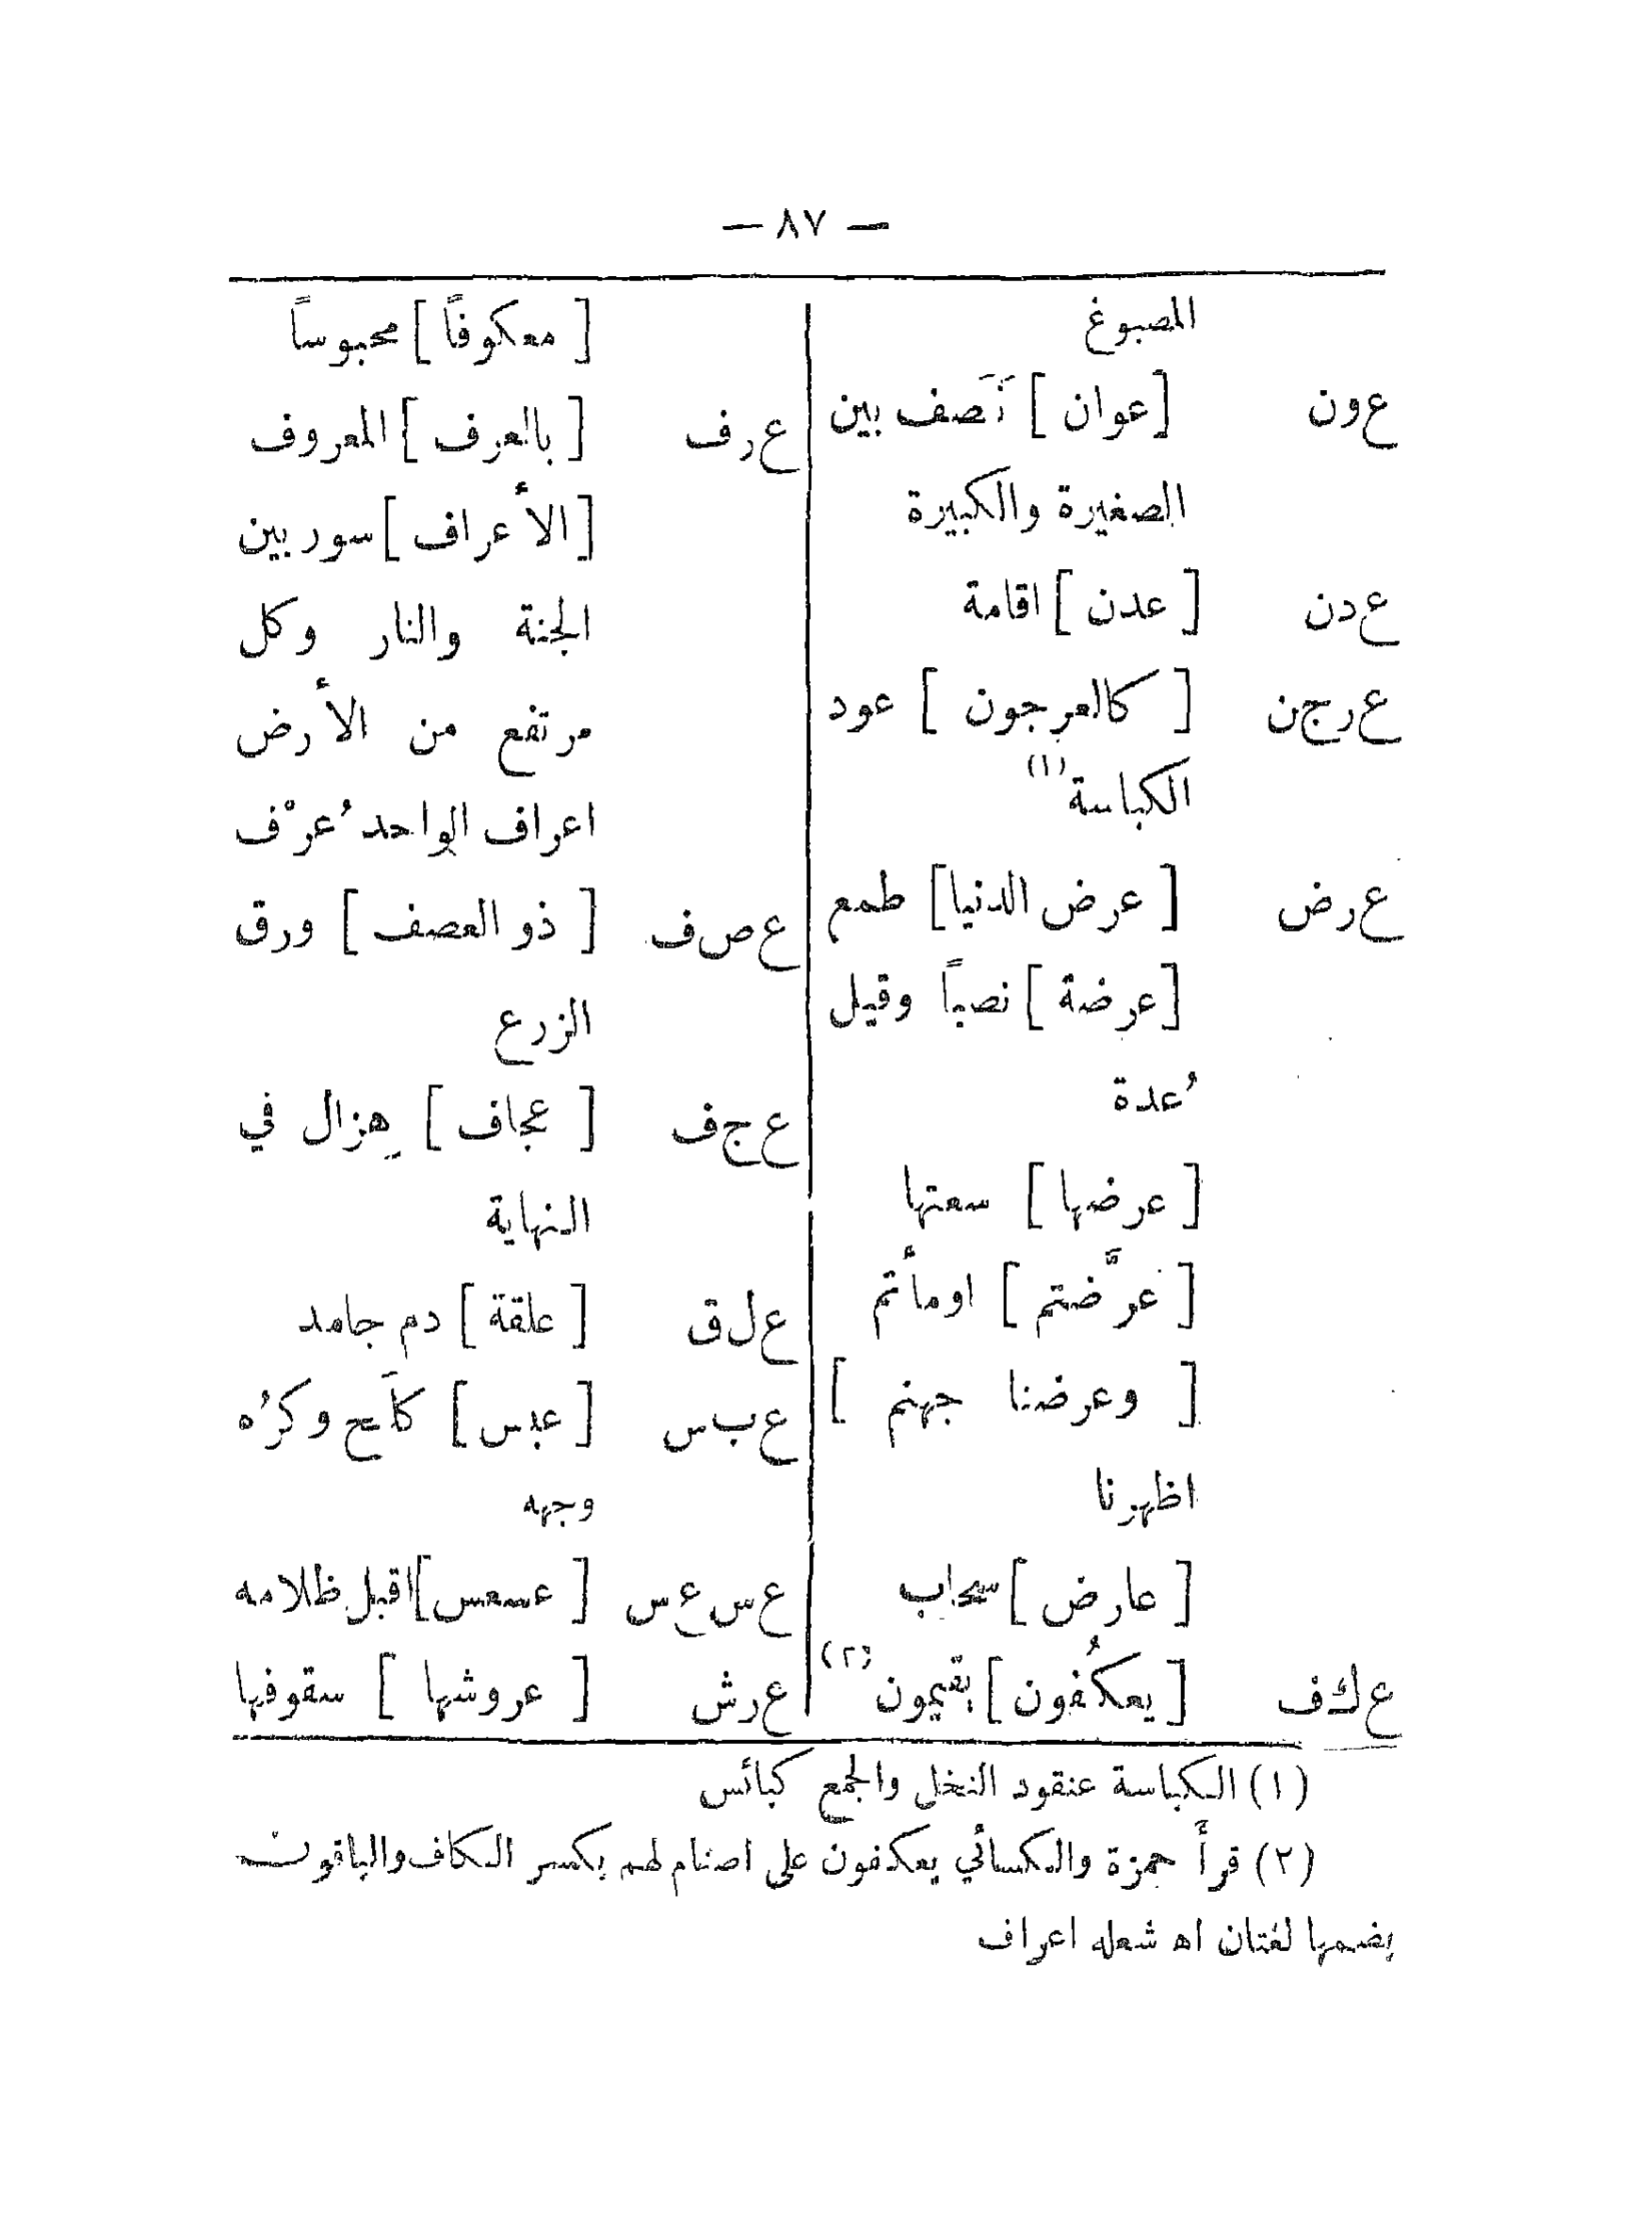 — ٨٧ —
المصبوغ
ع‌ون [عوان] نَصَف بين
الصغيرة والكبيرة
ع‌دن [عدن] اقامة
ع‌رج‌ن [كالعرجون] عود
الكباسة (١)
ع‌رض [عرض الدنيا] طمع
[عرضة] نصباً وقيل
عُدة
[عرضها] سعتها
[عرَّضتم] اومأتم
[وعرضنا جهنم]
اظهرنا
[عارض] سحاب
ع‌ك‌ف [يعكُفون] يقيمون (٢)
[معكوفاً] محبوساً
ع‌رف [بالعرف] المعروف
[الأعراف] سور بين
الجنة والنار وكل
مرتفع من الأرض
اعراف الواحد عُرْف
ع‌ص‌ف [ذو العصف] ورق
الزرع
ع‌ج‌ف [عجاف] هِزال في
النهاية
ع‌ل‌ق [علقة] دم جامد
ع‌ب‌س [عبس] كلَح وكرُه
وجهه
ع‌س‌ع‌س [عسعس] اقبل ظلامه
ع‌رش [عروشها] سقوفها
(١) الكباسة عنقود النخل والجمع كبائس
(٢) قرأ حمزة والكسائي يعكفون على اصنام لهم بكسر الكاف والباقون
بضمها لغتان اه شعله اعراف